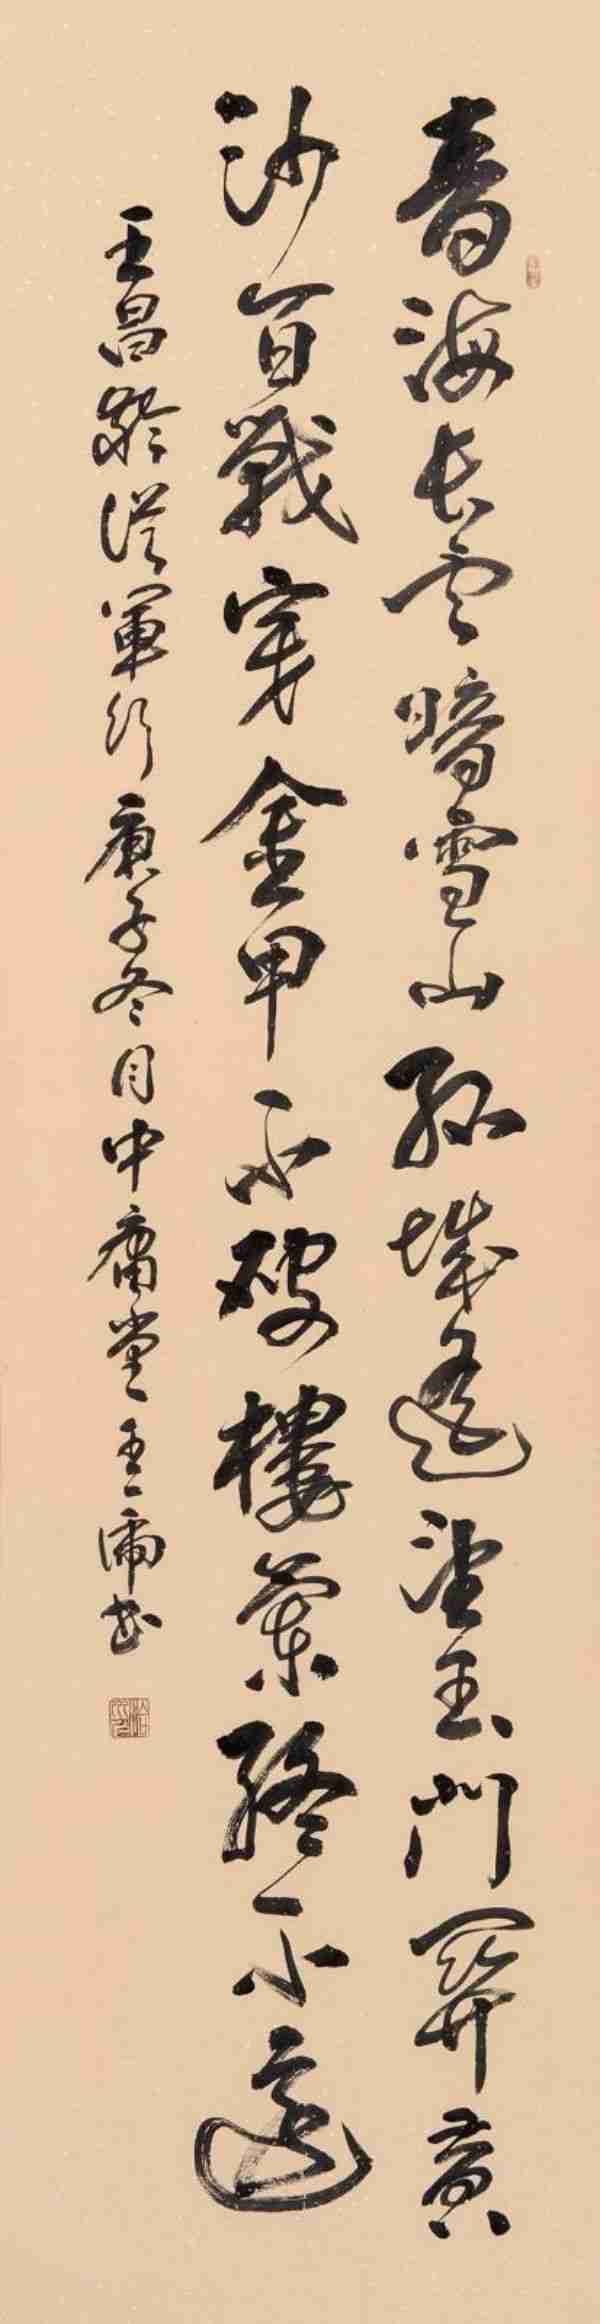 青海長雲暗雪山孤城遙望玉門關黃
沙百戰穿金甲不破樓蘭終不還
王昌齡從軍行庚子冬月中庸堂王霈書